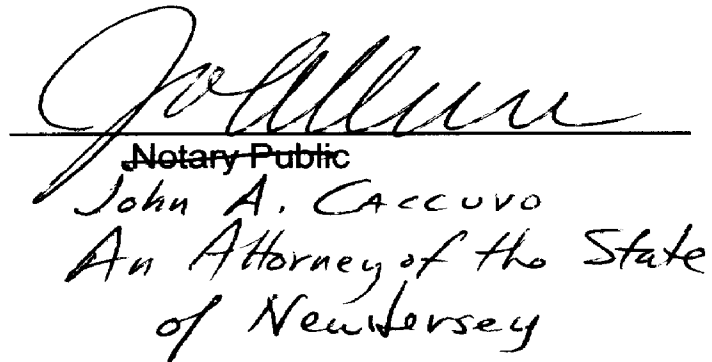 Notary Public
John A. Caccuvo
An Attorney of the State
of New Jersey